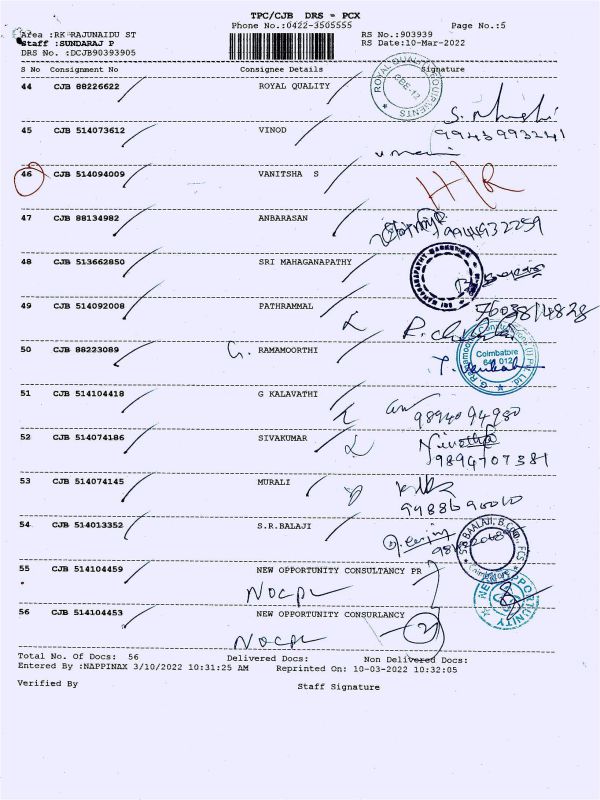 TPC/CJB DRS - PCX
Phone No.:0422-3505555 Page No.:5
Area :RK RAJUNAIDU ST RS No.:903939
Staff :SUNDARAJ P RS Date:10-Mar-2022
DRS No. :DCJB90393905
S No Consignment No Consignee Details Signature
44 CJB 88226622 ROYAL QUALITY
ROYAL QUALITY EQUIPMENTS CBE-12
45 CJB 514073612 VINOD
46 CJB 514094009 VANITSHA S H/R
47 CJB 88134982 ANBARASAN
9944932259
48 CJB 513662850 SRI MAHAGANAPATHY
49 CJB 514092008 PATHRAMMAL
50 CJB 88223089 G. RAMAMOORTHI
Coimbatore
641 012
51 CJB 514104418 G KALAVATHI
9894094980
52 CJB 514074186 SIVAKUMAR
Nivetha
9894707381
53 CJB 514074145 MURALI
54 CJB 514013352 S.R.BALAJI
55 CJB 514104459 NEW OPPORTUNITY CONSULTANCY PR
NOCPL
NEW OPPORTUNITY
56 CJB 514104453 NEW OPPORTUNITY CONSURLANCY
NOCPL 2
Total No. Of Docs: 56 Delivered Docs: Non Delivered Docs:
Entered By :NAPPINAX 3/10/2022 10:31:25 AM Reprinted On: 10-03-2022 10:32:05
Verified By Staff Signature